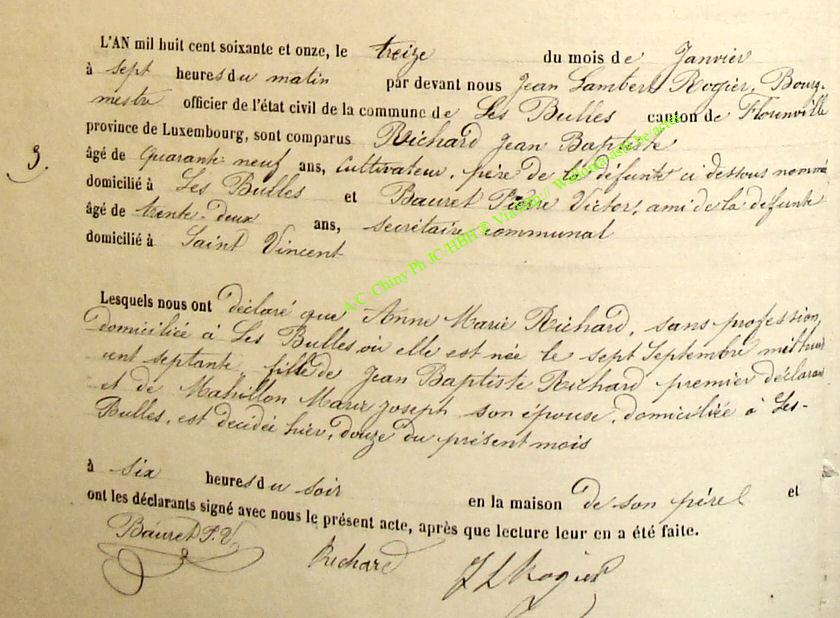 L'AN mil huit cent soixante et onze, le treize du mois de Janvier
à sept heures du matin par devant nous Jean Lambert Rogier, Bourg-
mestre officier de l'état civil de la commune de Les Bulles canton de Florenville
province de Luxembourg, sont comparus Richard Jean Baptiste
3. âgé de Quarante-neuf ans, Cultivateur, père de la défunte ci dessous nommé
domicilié à Les Bulles et Bauret Victor, ami de la defunte
âgé de trente-deux ans, secrétaire communal
domicilié à Saint Vincent
A.C. Chiny Ph JC HBH ®
Lesquels nous ont déclaré que Anne Marie Richard, sans profession,
domiciliée à Les Bulles, où elle est née le sept Septembre mil huit
cent septante, fille de Jean Baptiste Richard premier déclarant
et de Mahillon Marie Joseph son épouse, domiciliée à Les-
Bulles, est decédée hier, douze du présent mois
à six heures du soir en la maison de son père et
ont les déclarants signé avec nous le présent acte, après que lecture leur en a été faite.
Bauret P.V. Richard J L Rogier